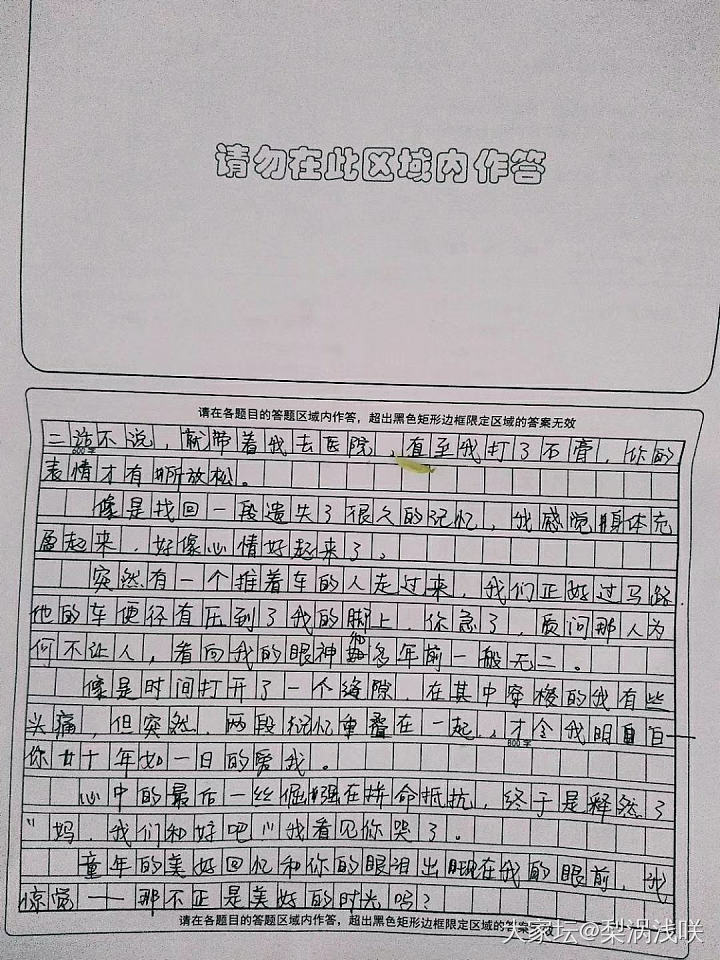 请勿在此区域内作答
请在各题目的答题区域内作答，超出黑色矩形边框限定区域的答案无效
二话不说，就带着我去医院，直至我打了石膏，你的
600字
表情才有所放松。
像是找回一段遗失了很久的记忆，我感觉身体充
盈起来，好像心情好起来了。
突然有一个推着车的人走过来，我们正好过马路，
他的车便径直压到了我的脚上，你急了，质问那人为
何不让人，看向我的眼神和多年前一般无二。
像是时间打开了一个缝隙，在其中穿梭的我有些
头痛，但突然，两段记忆重叠在一起，才令我明白——
800字
你廿十年如一日的爱我。
心中的最后一丝倔强在拼命抵抗，终于是释然了
“妈，我们和好吧”我看见你哭了。
童年的美好回忆和你的眼泪出现在我的眼前，我
惊觉——那不正是美好的时光吗？
请在各题目的答题区域内作答，超出黑色矩形边框限定区域的答案无效
大家坛@梨涡浅咲